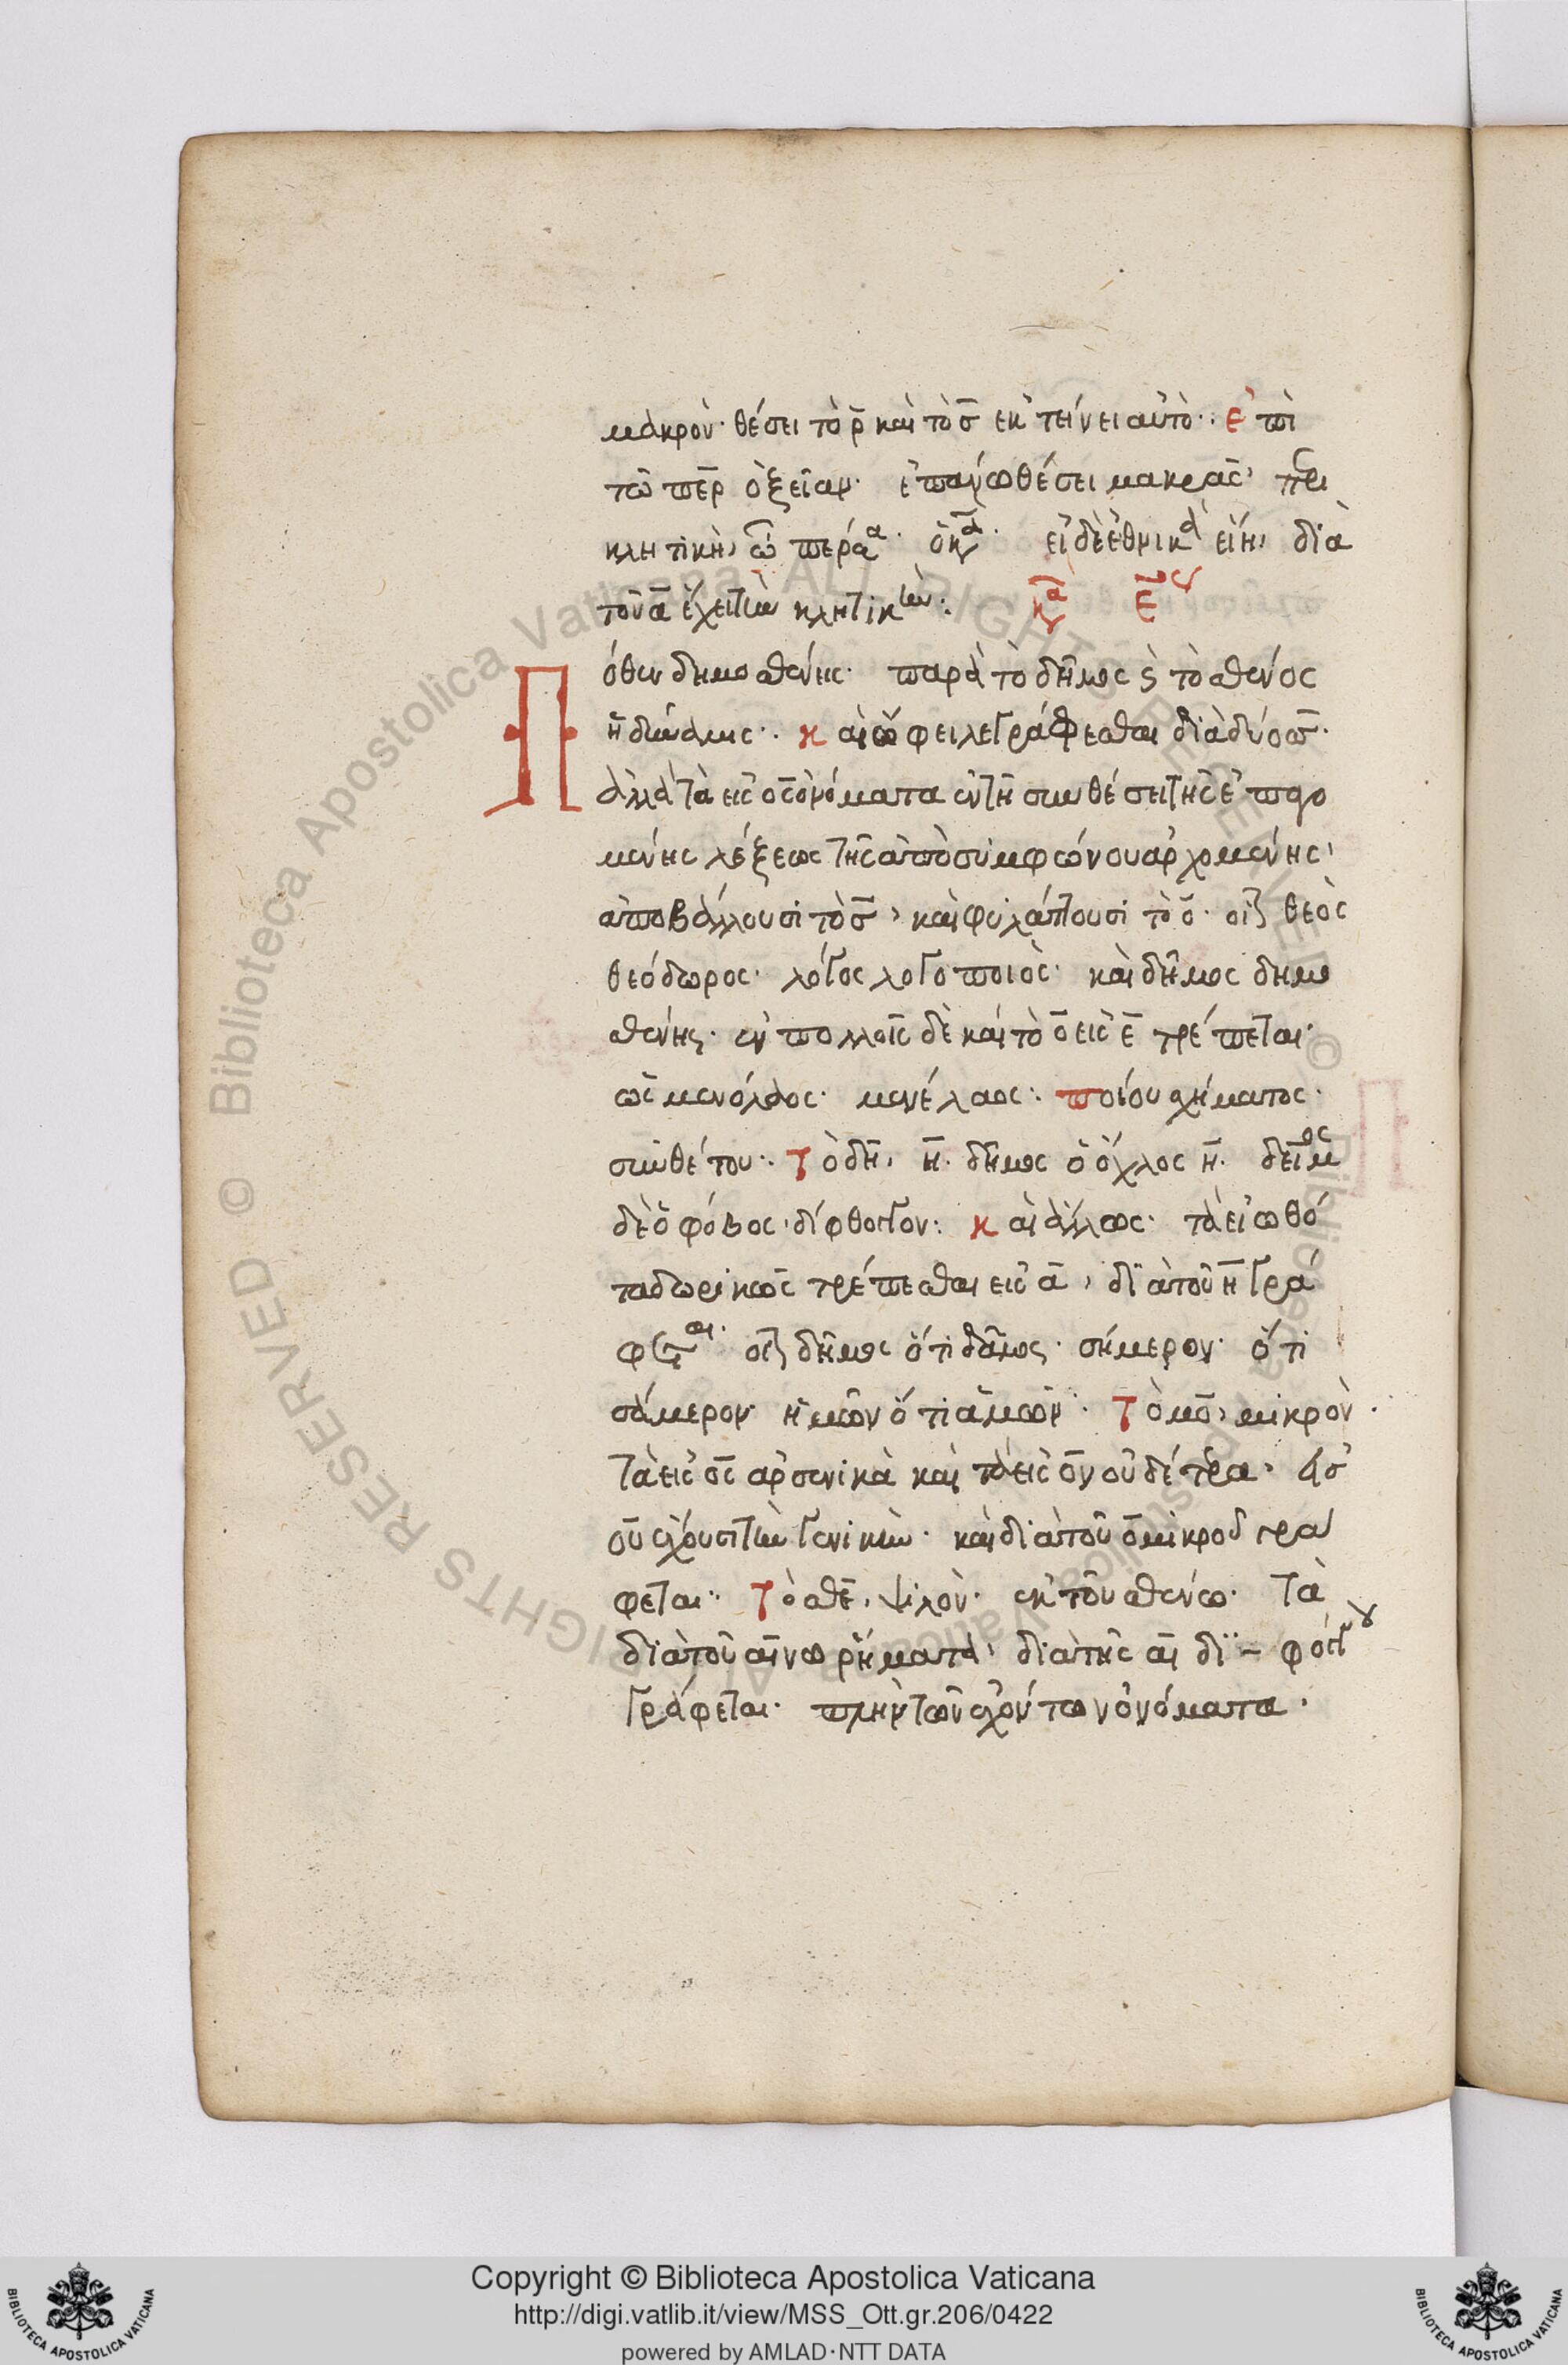 μακρὸν· θέσει τὸ ρ̄ καὶ τὸ σ̄ ἐκτείνει αὐτό·. ἐπὶ
τῶ πέρ ὀξεῖαν· ἐπάνω θέσει μακρᾶς·
κλητικὴ, ὦ πέρσα·
τοῦ ᾱ ἔχει τὴν κλητικήν:.
Πόθεν δημοσθένης· παρὰ τὸ δῆμος ϛ τὸ σθένος
ἡ δύναμις·. καὶ ὤφειλε γράφεσθαι διὰ δύο σ̄·
ἀλλὰ τὰ εἰς ο̄ς ὀνόματα ἐν τῆ συνθέσει τῆς ἐπαγο
μένης λέξεως τῆς ἀπὸ συμφώνου ἀρχομένης,
ἀποβάλλουσι τὸ σ̄, καὶ φυλάττουσι τὸ ο̄· οἷον θεὸς
θεόδωρος· λόγος λογοποιὸς· καὶ δῆμος δημο
σθένης· ἐν πολλοῖς δὲ καὶ τὸ ο̄ εἰς ε̄ τρέπεται·
ὡς μενόλαος· μενέλαος:. ποίου σχήματος·
συνθέτου·. τὸ δη, η̄· δῆμος ὁ ὄχλος η̄· δεῖμος
δὲ ὁ φόβος, δίφθογγον:. καὶ ἄλλως· τὰ εἰωθό
τα δωρικῶς τρέπεσθαι εἰς ᾱ, διὰ τοῦ η̄ γρά
φεται· οἷον δῆμος ὅτι δᾶμος· σήμερον· ὅτι
σάμερον· ἡμῶν ὅτι ἁμῶν·. τὸ μο, μικρὸν·
τὰ εἰς ο̄ς ἀρσενικὰ καὶ τὰ εἰς ο̄ν οὐδέτερα· εἰς
ου ἔχουσι τὴν γενικὴν· καὶ διὰ τοῦ ο̄ μικροῦ γρά
φεται·. τὸ σθε, ψιλὸν· ἐκ τοῦ σθένω· τὰ
διὰ τοῦ αίνω ῥήματα, διὰ τῆς αι διφθόγγου
γράφεται· πλὴν τῶν ἐχόντων ὀνόματα·
Copyright © Biblioteca Apostolica Vaticana
http://digi.vatlib.it/view/MSS_Ott.gr.206/0422
powered by AMLAD·NTT DATA
BIBLIOTECA APOSTOLICA VATICANA
BIBLIOTECA APOSTOLICA VATICANA
© Biblioteca Apostolica Vaticana ALL RIGHTS RESERVED